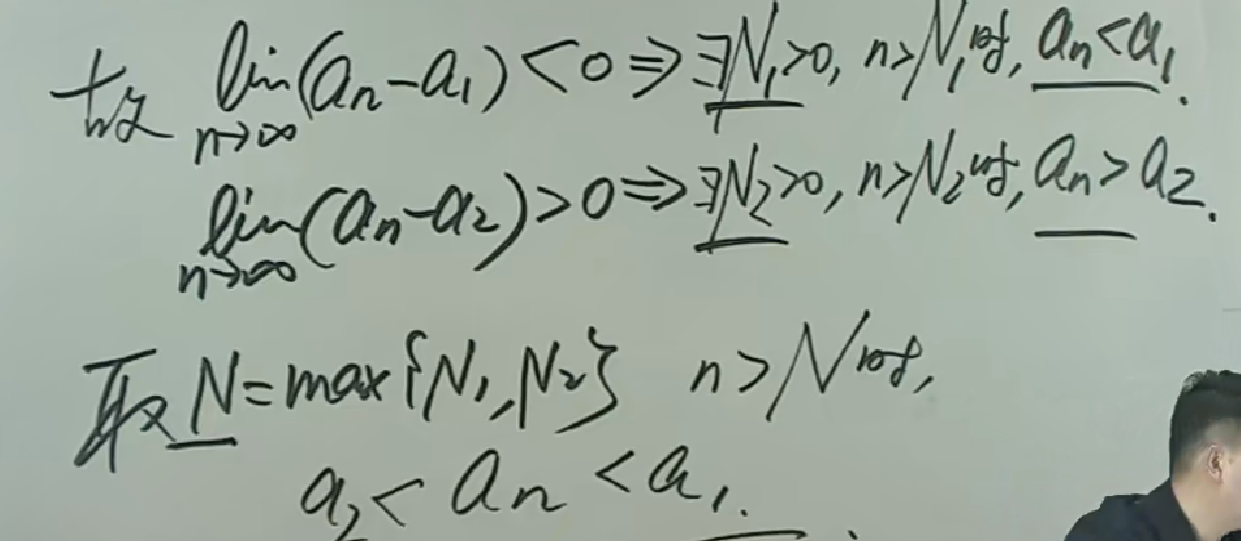 故 lim(an-a1)<0⇒∃N1>0, n>N1时, an<a1.
n→∞
lim(an-a2)>0⇒∃N2>0, n>N2时, an>a2.
n→∞
取 N=max{N1,N2} n>N时,
a2<an<a1.